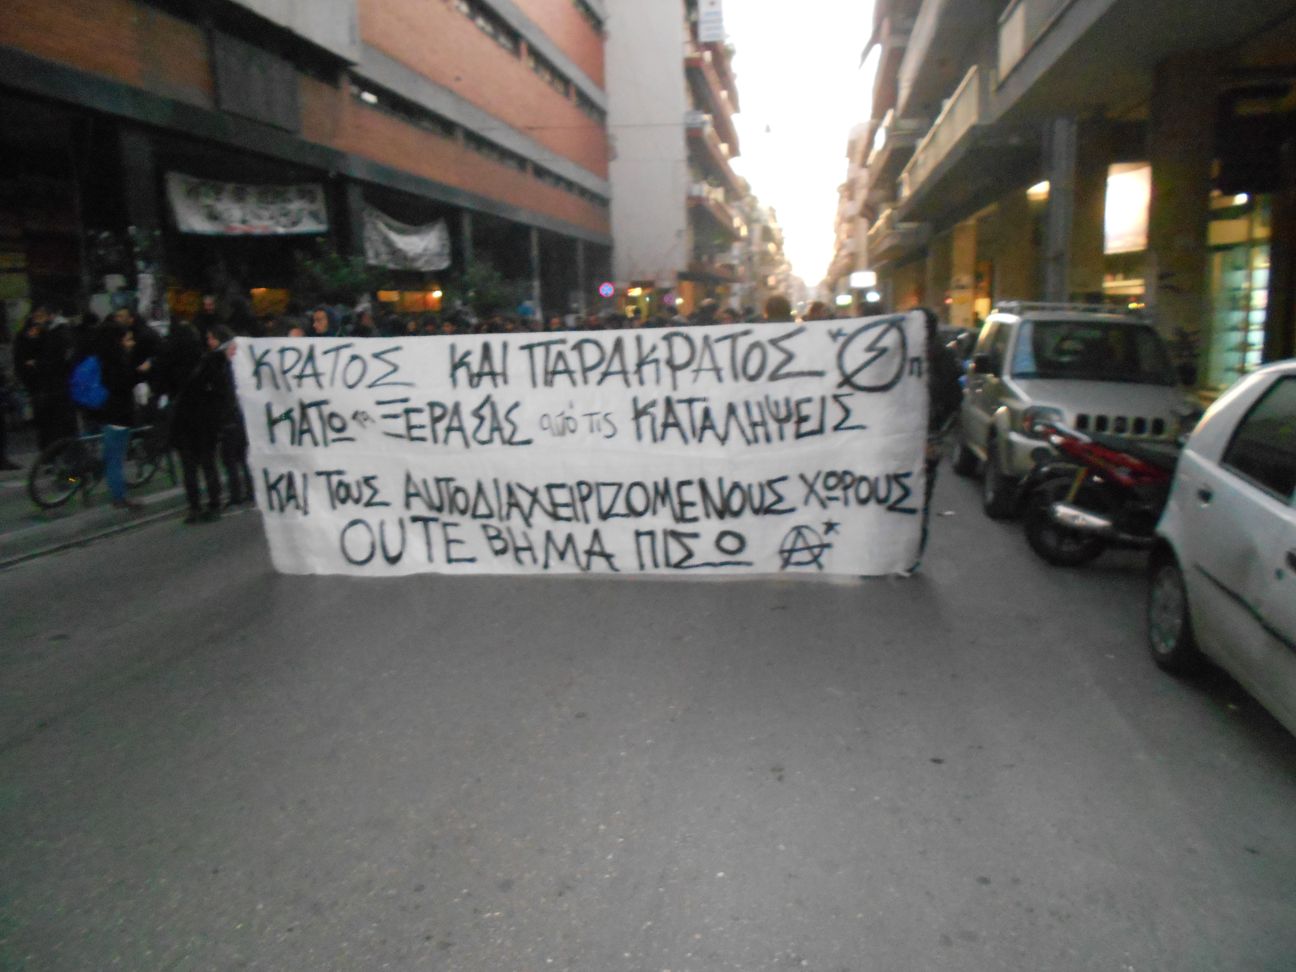 ΚΡΑΤΟΣ ΚΑΙ ΠΑΡΑΚΡΑΤΟΣ
ΚΑΤΩ τα ΞΕΡΑΣΑΣ από τις ΚΑΤΑΛΗΨΕΙΣ
ΚΑΙ ΤΟΥΣ ΑΥΤΟΔΙΑΧΕΙΡΙΖΟΜΕΝΟΥΣ ΧΩΡΟΥΣ
ΟΥΤΕ ΒΗΜΑ ΠΙΣΩ